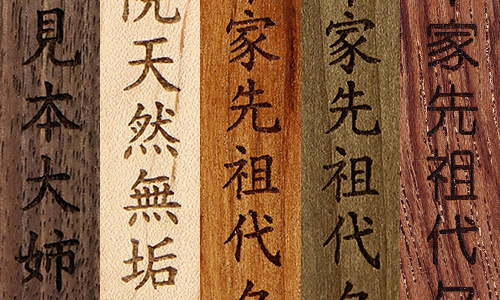 見本大姉
院天然無垢
家先祖代々
家先祖代々
家先祖代々